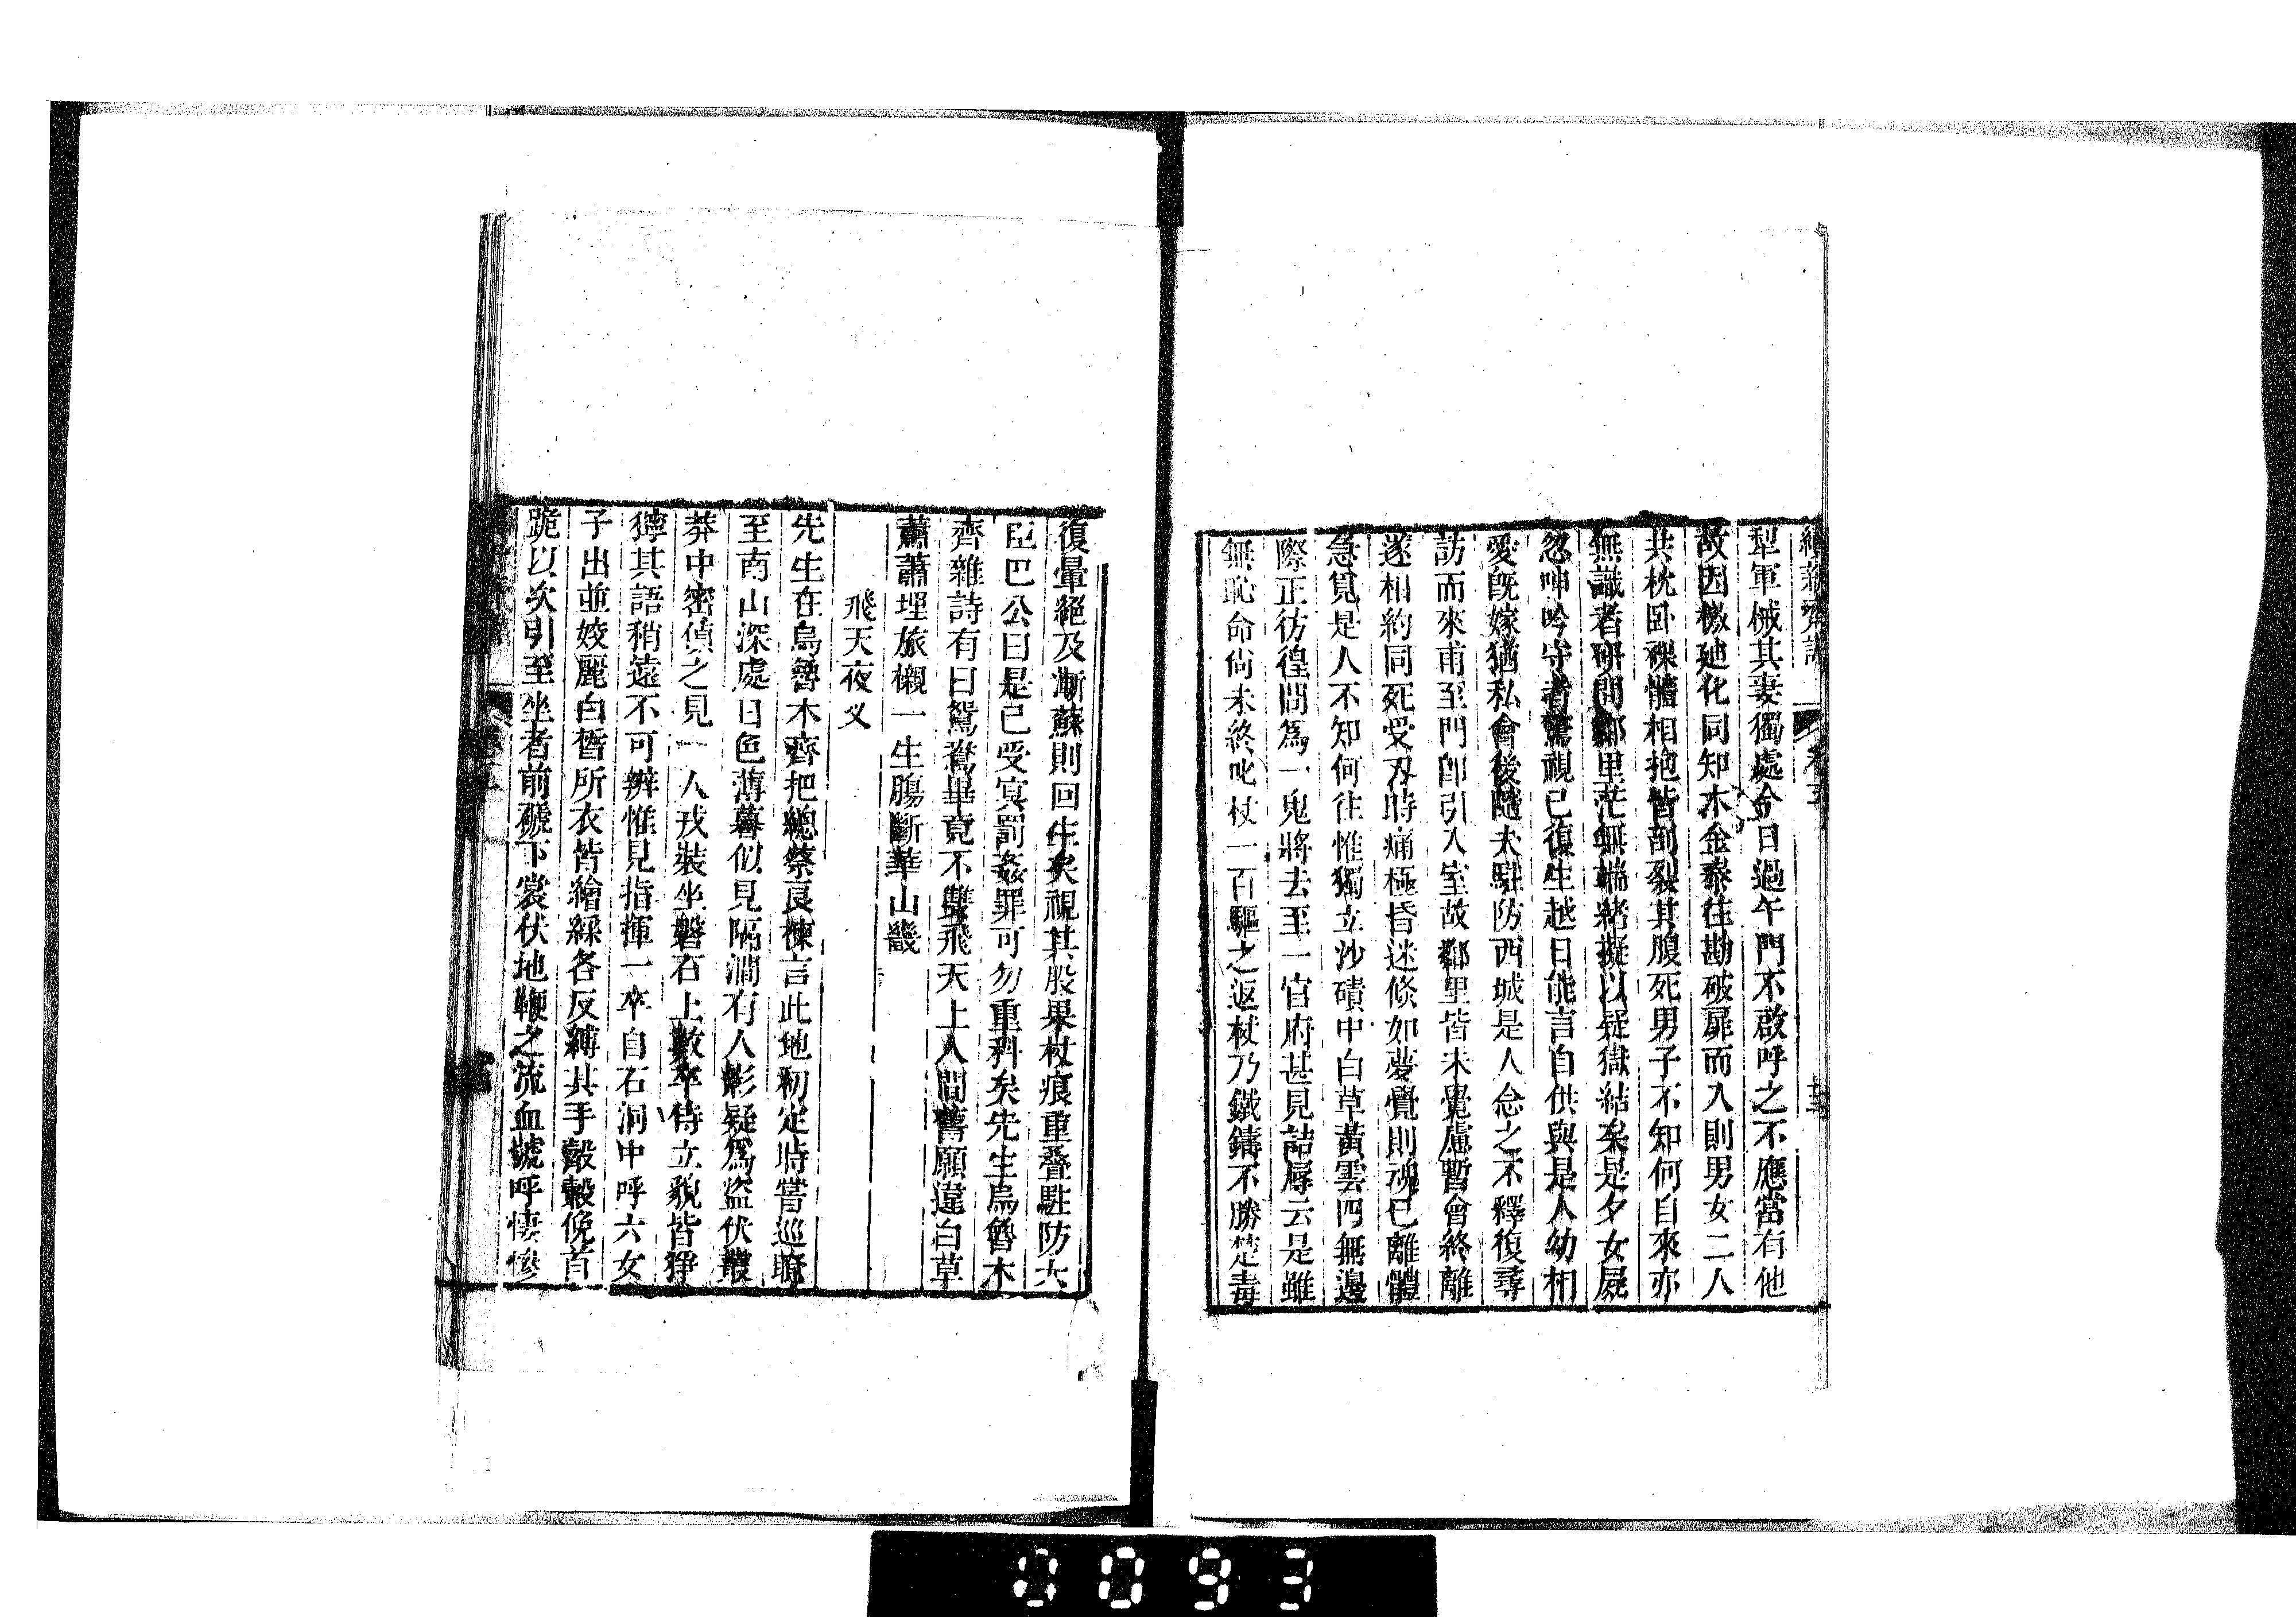 續新齊諧 卷五
犁軍械其妻獨處今日過午門不啟呼之不應當有他
故因檄廸化同知木金泰往勘破扉而入則男女二人
共枕卧裸體相抱皆剖裂其腹死男子不知何自來亦
無識者研問鄰里茫無端緒擬以疑獄結矣是夕女屍
忽呻吟守者驚視已復生越日能言自供與是人幼相
愛旣嫁猶私會後隨夫駐防西城是人念之不釋復尋
訪而來甫至門卽引入室故鄰里皆未覺慮暫會終離
遂相約同死受刃時痛極昏迷倐如夢覺則魂已離體
急覓是人不知何往惟獨立沙磧中白草黃雲四無邊
際正彷徨間爲一鬼將去至一官府甚見詰辱云是雖
無恥命尚未終叱杖一百驅之返杖乃鐵鑄不勝楚毒
復暈絕及漸蘇則回生矣視其股果杖痕重叠駐防大
臣巴公曰是已受冥罰姦罪可勿重科矣先生烏魯木
齊雜詩有曰鴛鴦畢竟不雙飛天上人間舊願違白草
蕭蕭埋旅櫬一生腸斷華山畿
飛天夜义
先生在烏魯木齊把總蔡良棟言此地初定時嘗巡瞭
至南山深處日色薄暮似見隔澗有人影疑爲盜伏叢
莽中密偵之見一人戎裝坐磐石上數卒侍立貌皆猙
獰其語稍遠不可辨惟見指揮一卒自石洞中呼六女
子出並姣麗白晳所衣皆繪綵各反縛其手觳觫俛首
跪以次引至坐者前褫下裳伏地鞭之流血號呼悽慘
0093